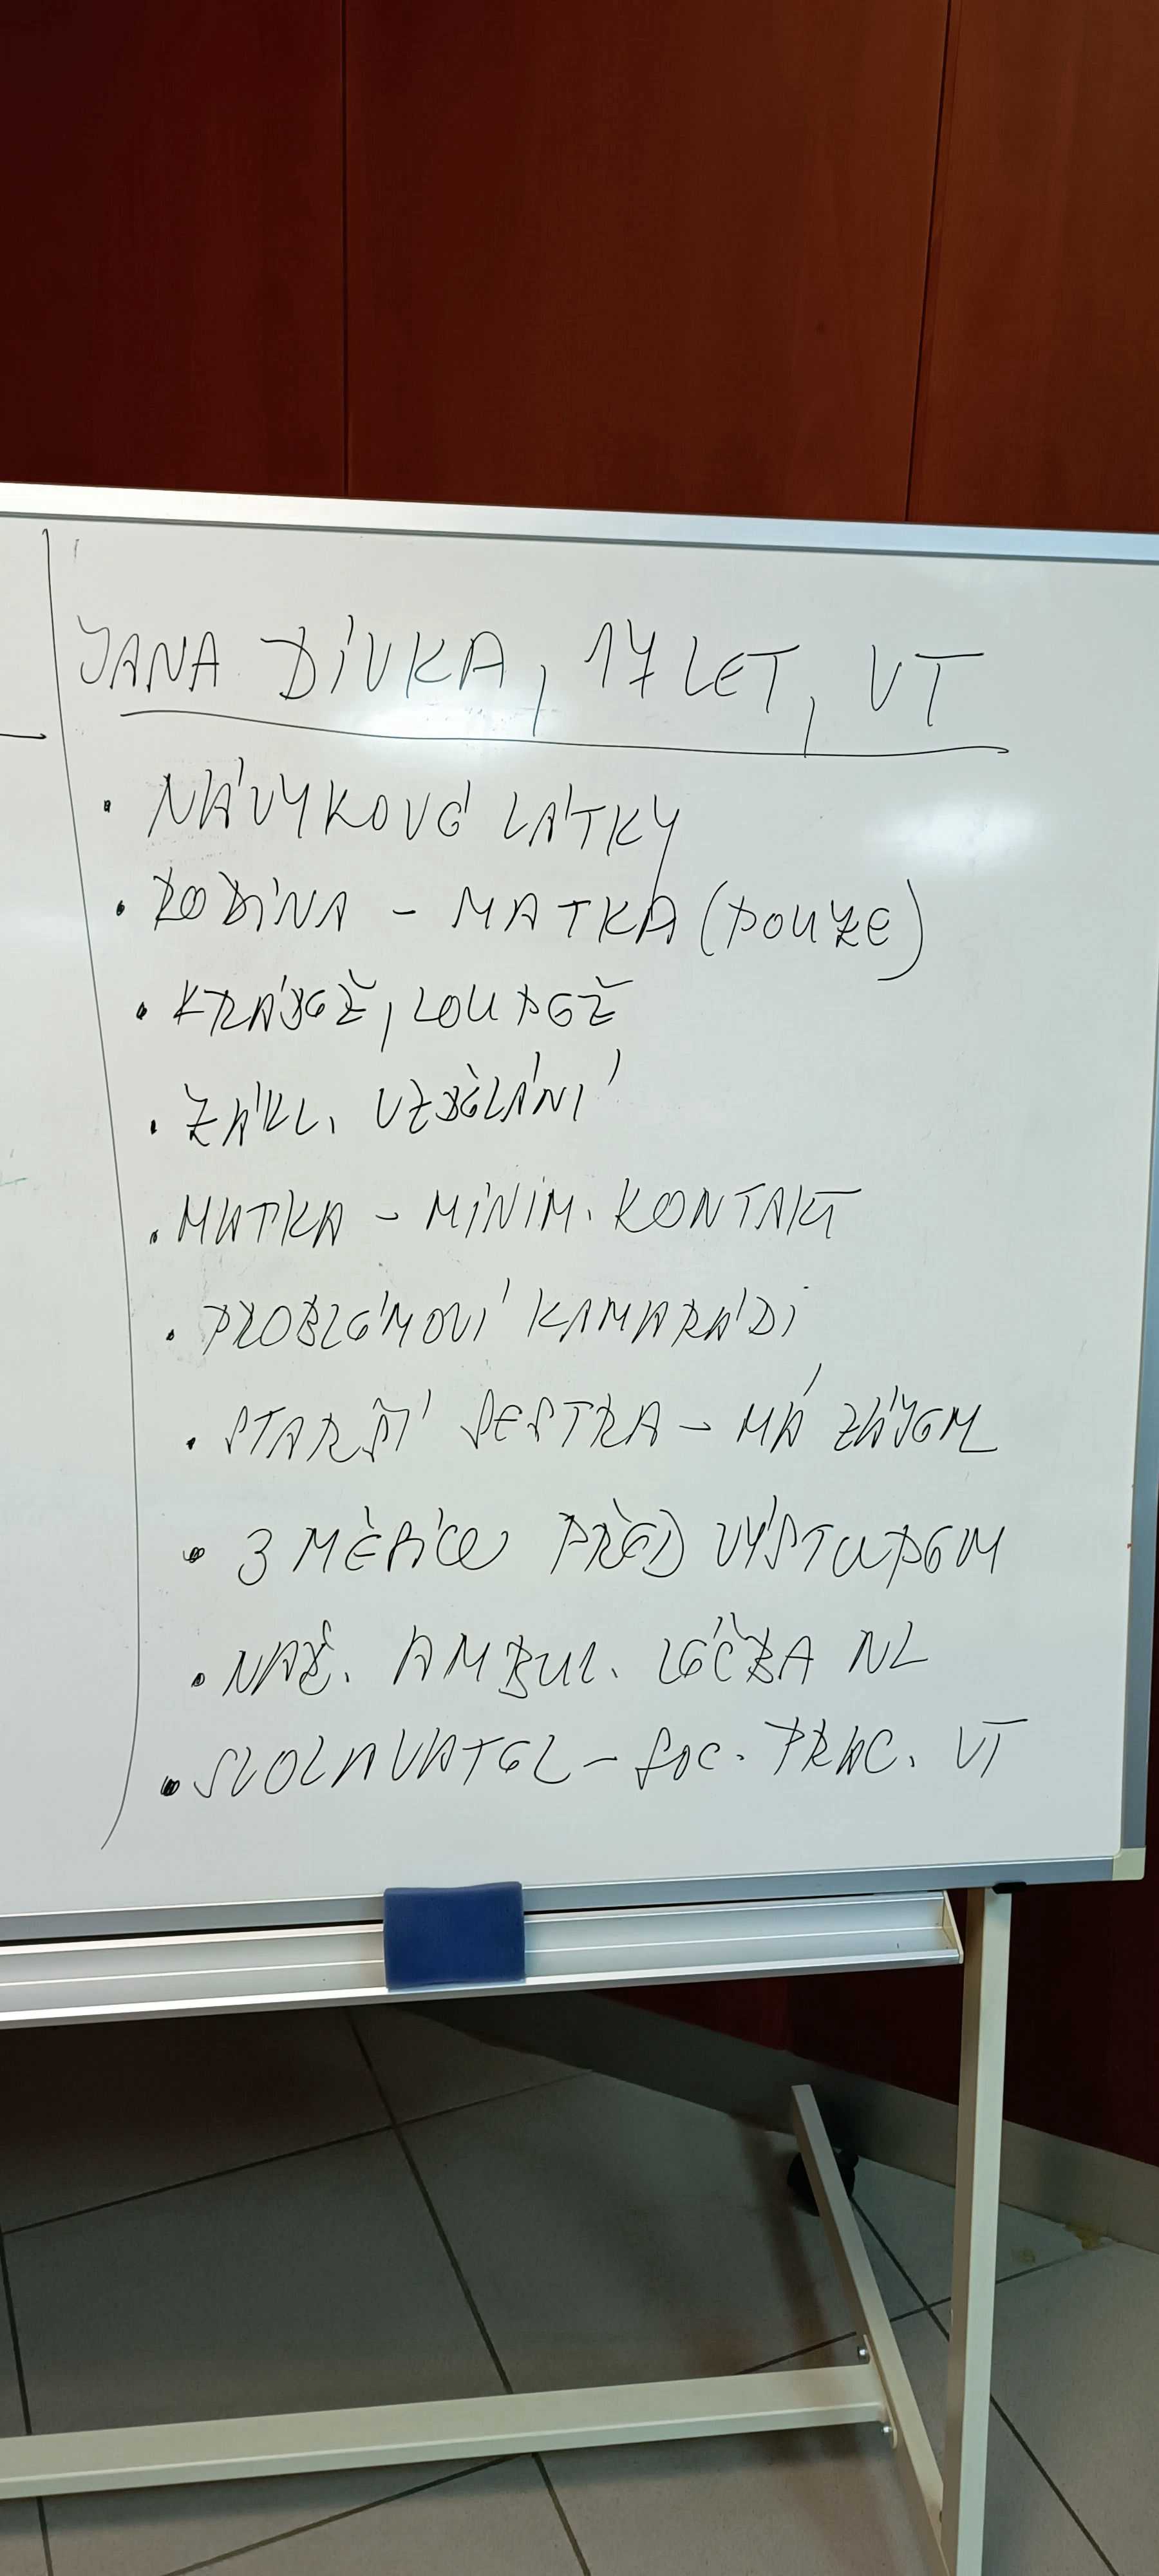 JANA DÍVKA, 17 LET, VT
• NÁVYKOVÉ LÁTKY
• RODINA - MATKA (POUZE)
• KRÁDEŽ, LOUPEŽ
• ZÁKL. VZDĚLÁNÍ
• MATKA - MINIM. KONTAKT
• PROBLÉMOVÍ KAMARÁDI
• STARŠÍ SESTRA - MÁ ZÁJEM
• 3 MĚSÍCE PŘED VÝSTUPEM
• NAŘ. AMBUL. LÉČBA NL
• SVOLAVATEL - SOC. PRAC. VT